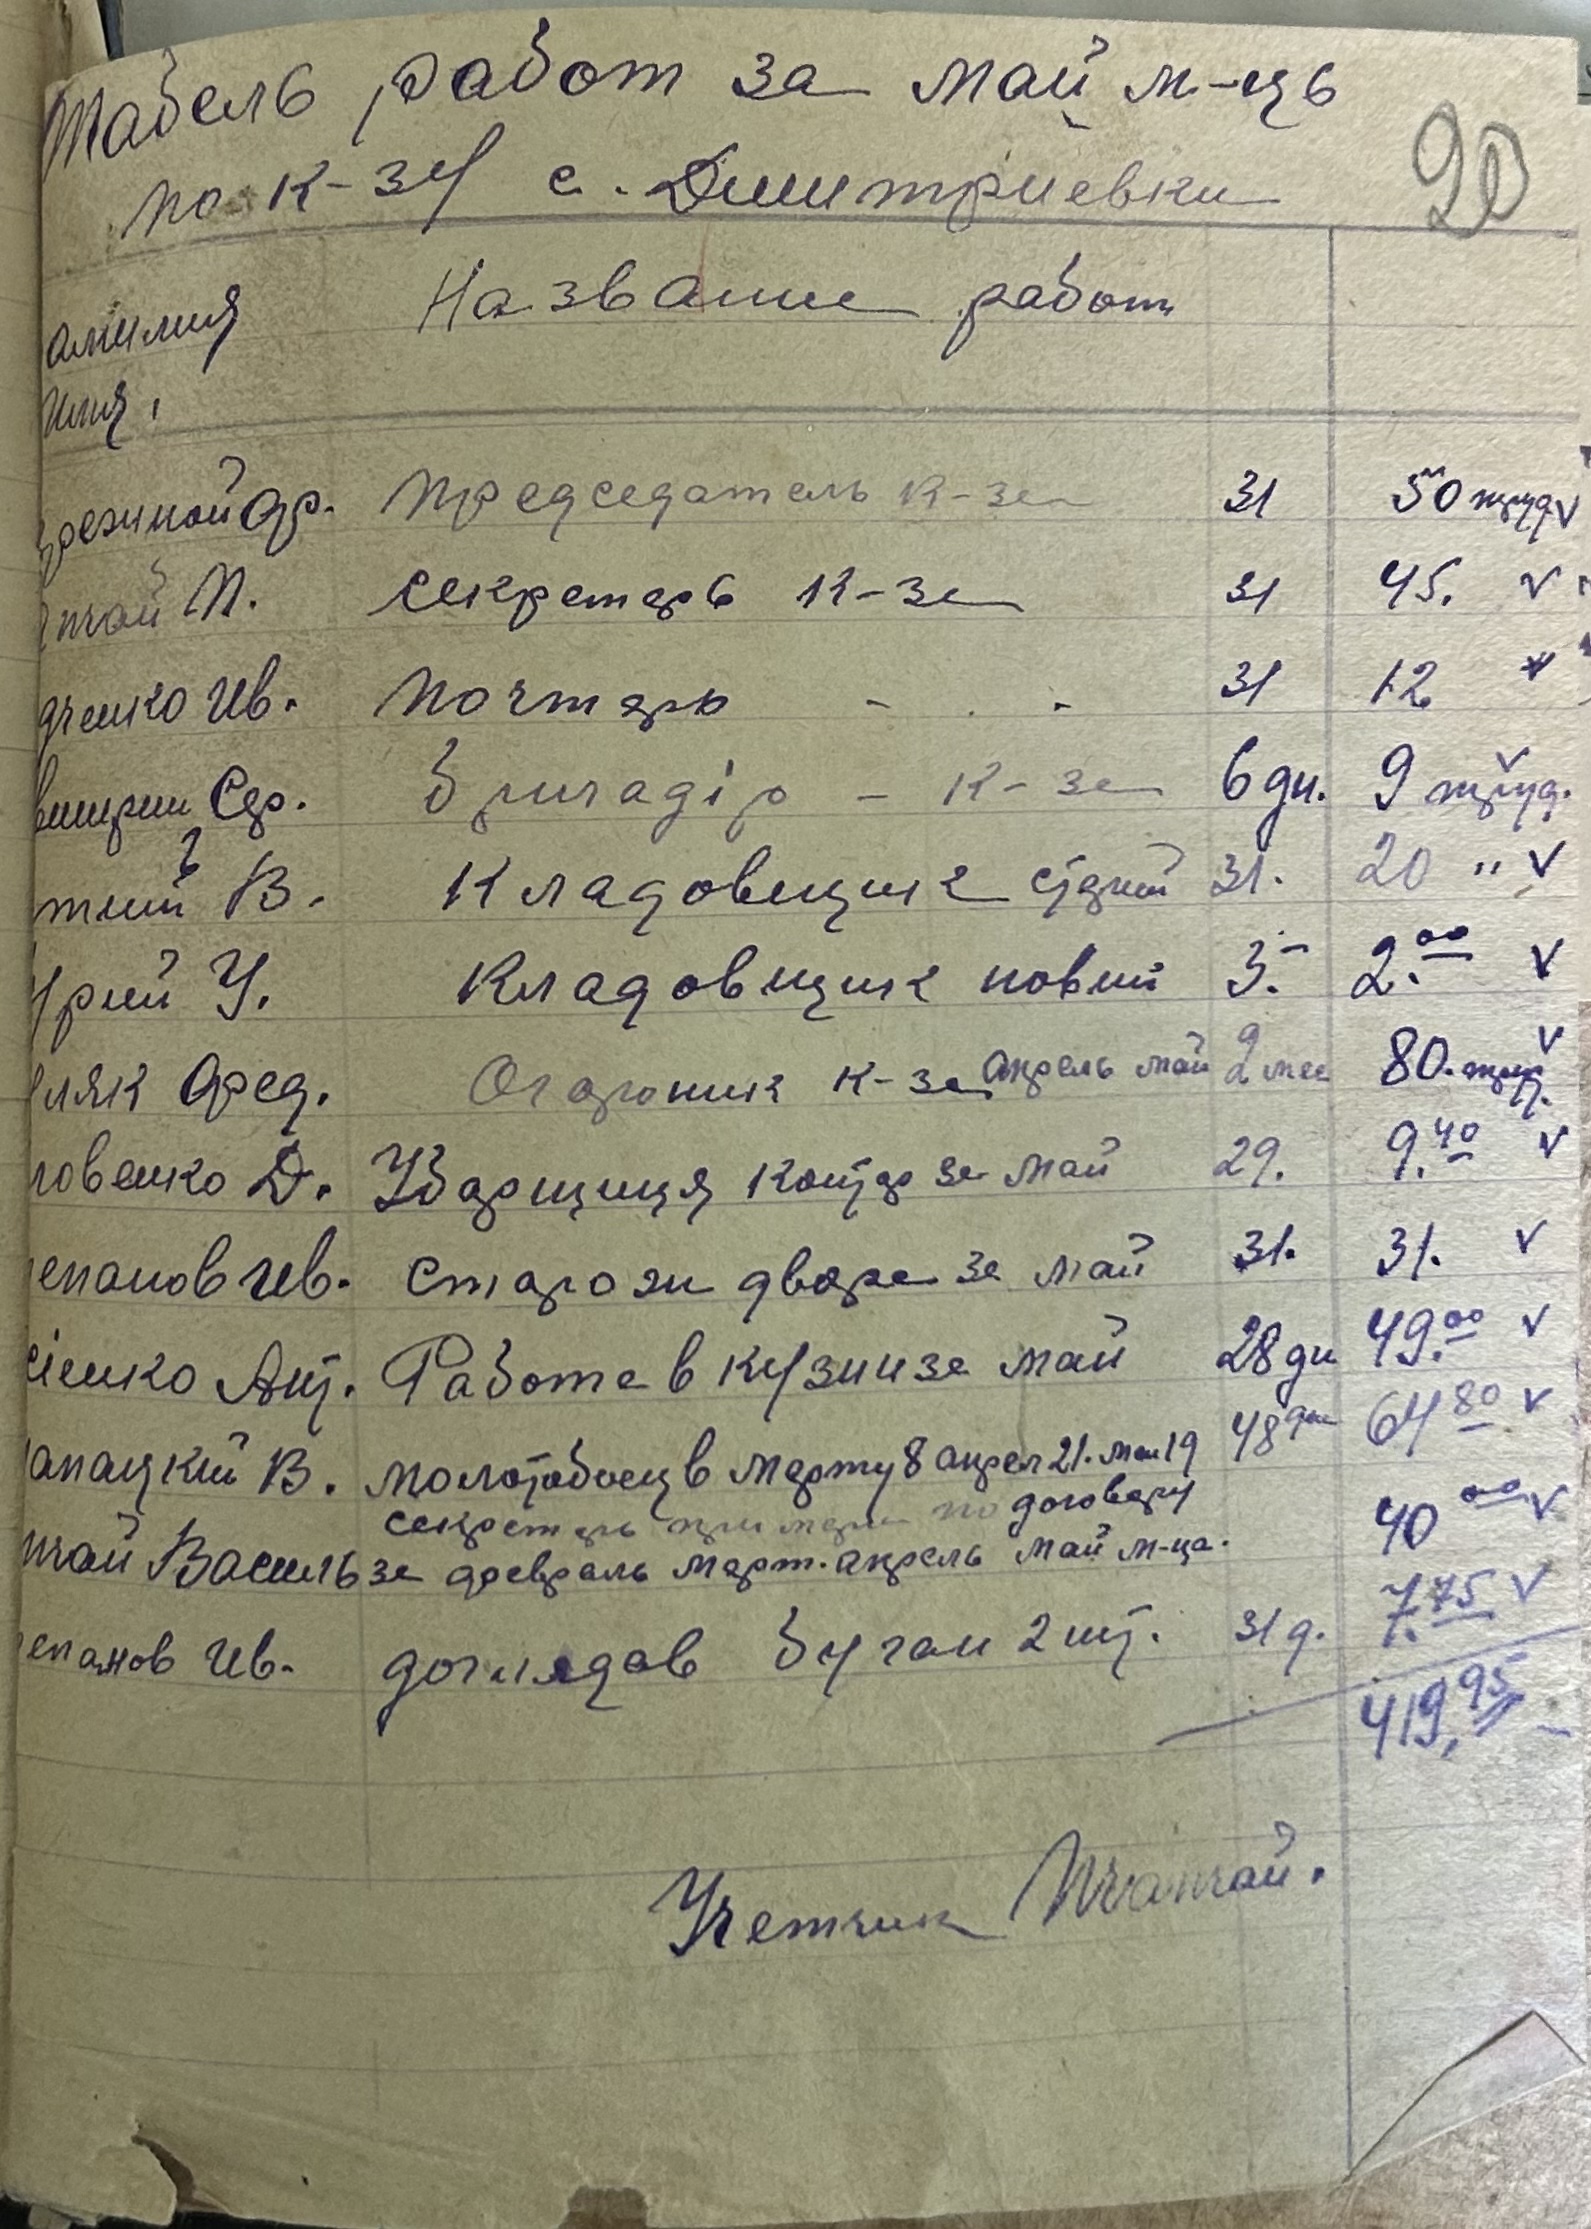 Табель работ за май м-ць
по к-зу с. Дмитриевки
20
амилия Название работ
имя,
режной Фр. Председатель к-за 31 50 труд ✓
тчай П. секретарь к-за 31 45. ✓
дченко Ив. почтарь - . - 31 12 "
Сер. бригадір - к-за 6 дн. 9 труд. ✓
тний В. Кладовщик старий 31. 20 " ✓
урий У. Кладовщик новий 3. 2.00 ✓
ляк Фред. Огароник к-за апрель май 2 мес 80. труд. ✓
ловенко Д. Убарщиця контр за май 29. 9.40 ✓
епанов Ив. старож двора за май 31. 31. ✓
сіенко Ант. Работа в кузни за май 28 дн 49.00 ✓
апацкий В. молотобоец в марту 8 апрел 21. мая 19 48 дн 64 80 ✓
секретарь по договару
тчай Василь за февраль март. апрель май м-ца. 40 00 ✓
епанов Ив. доглядав бугаи 2 шт. 31 д. 7.75 ✓
419,95
Учетчик Пчатчай.